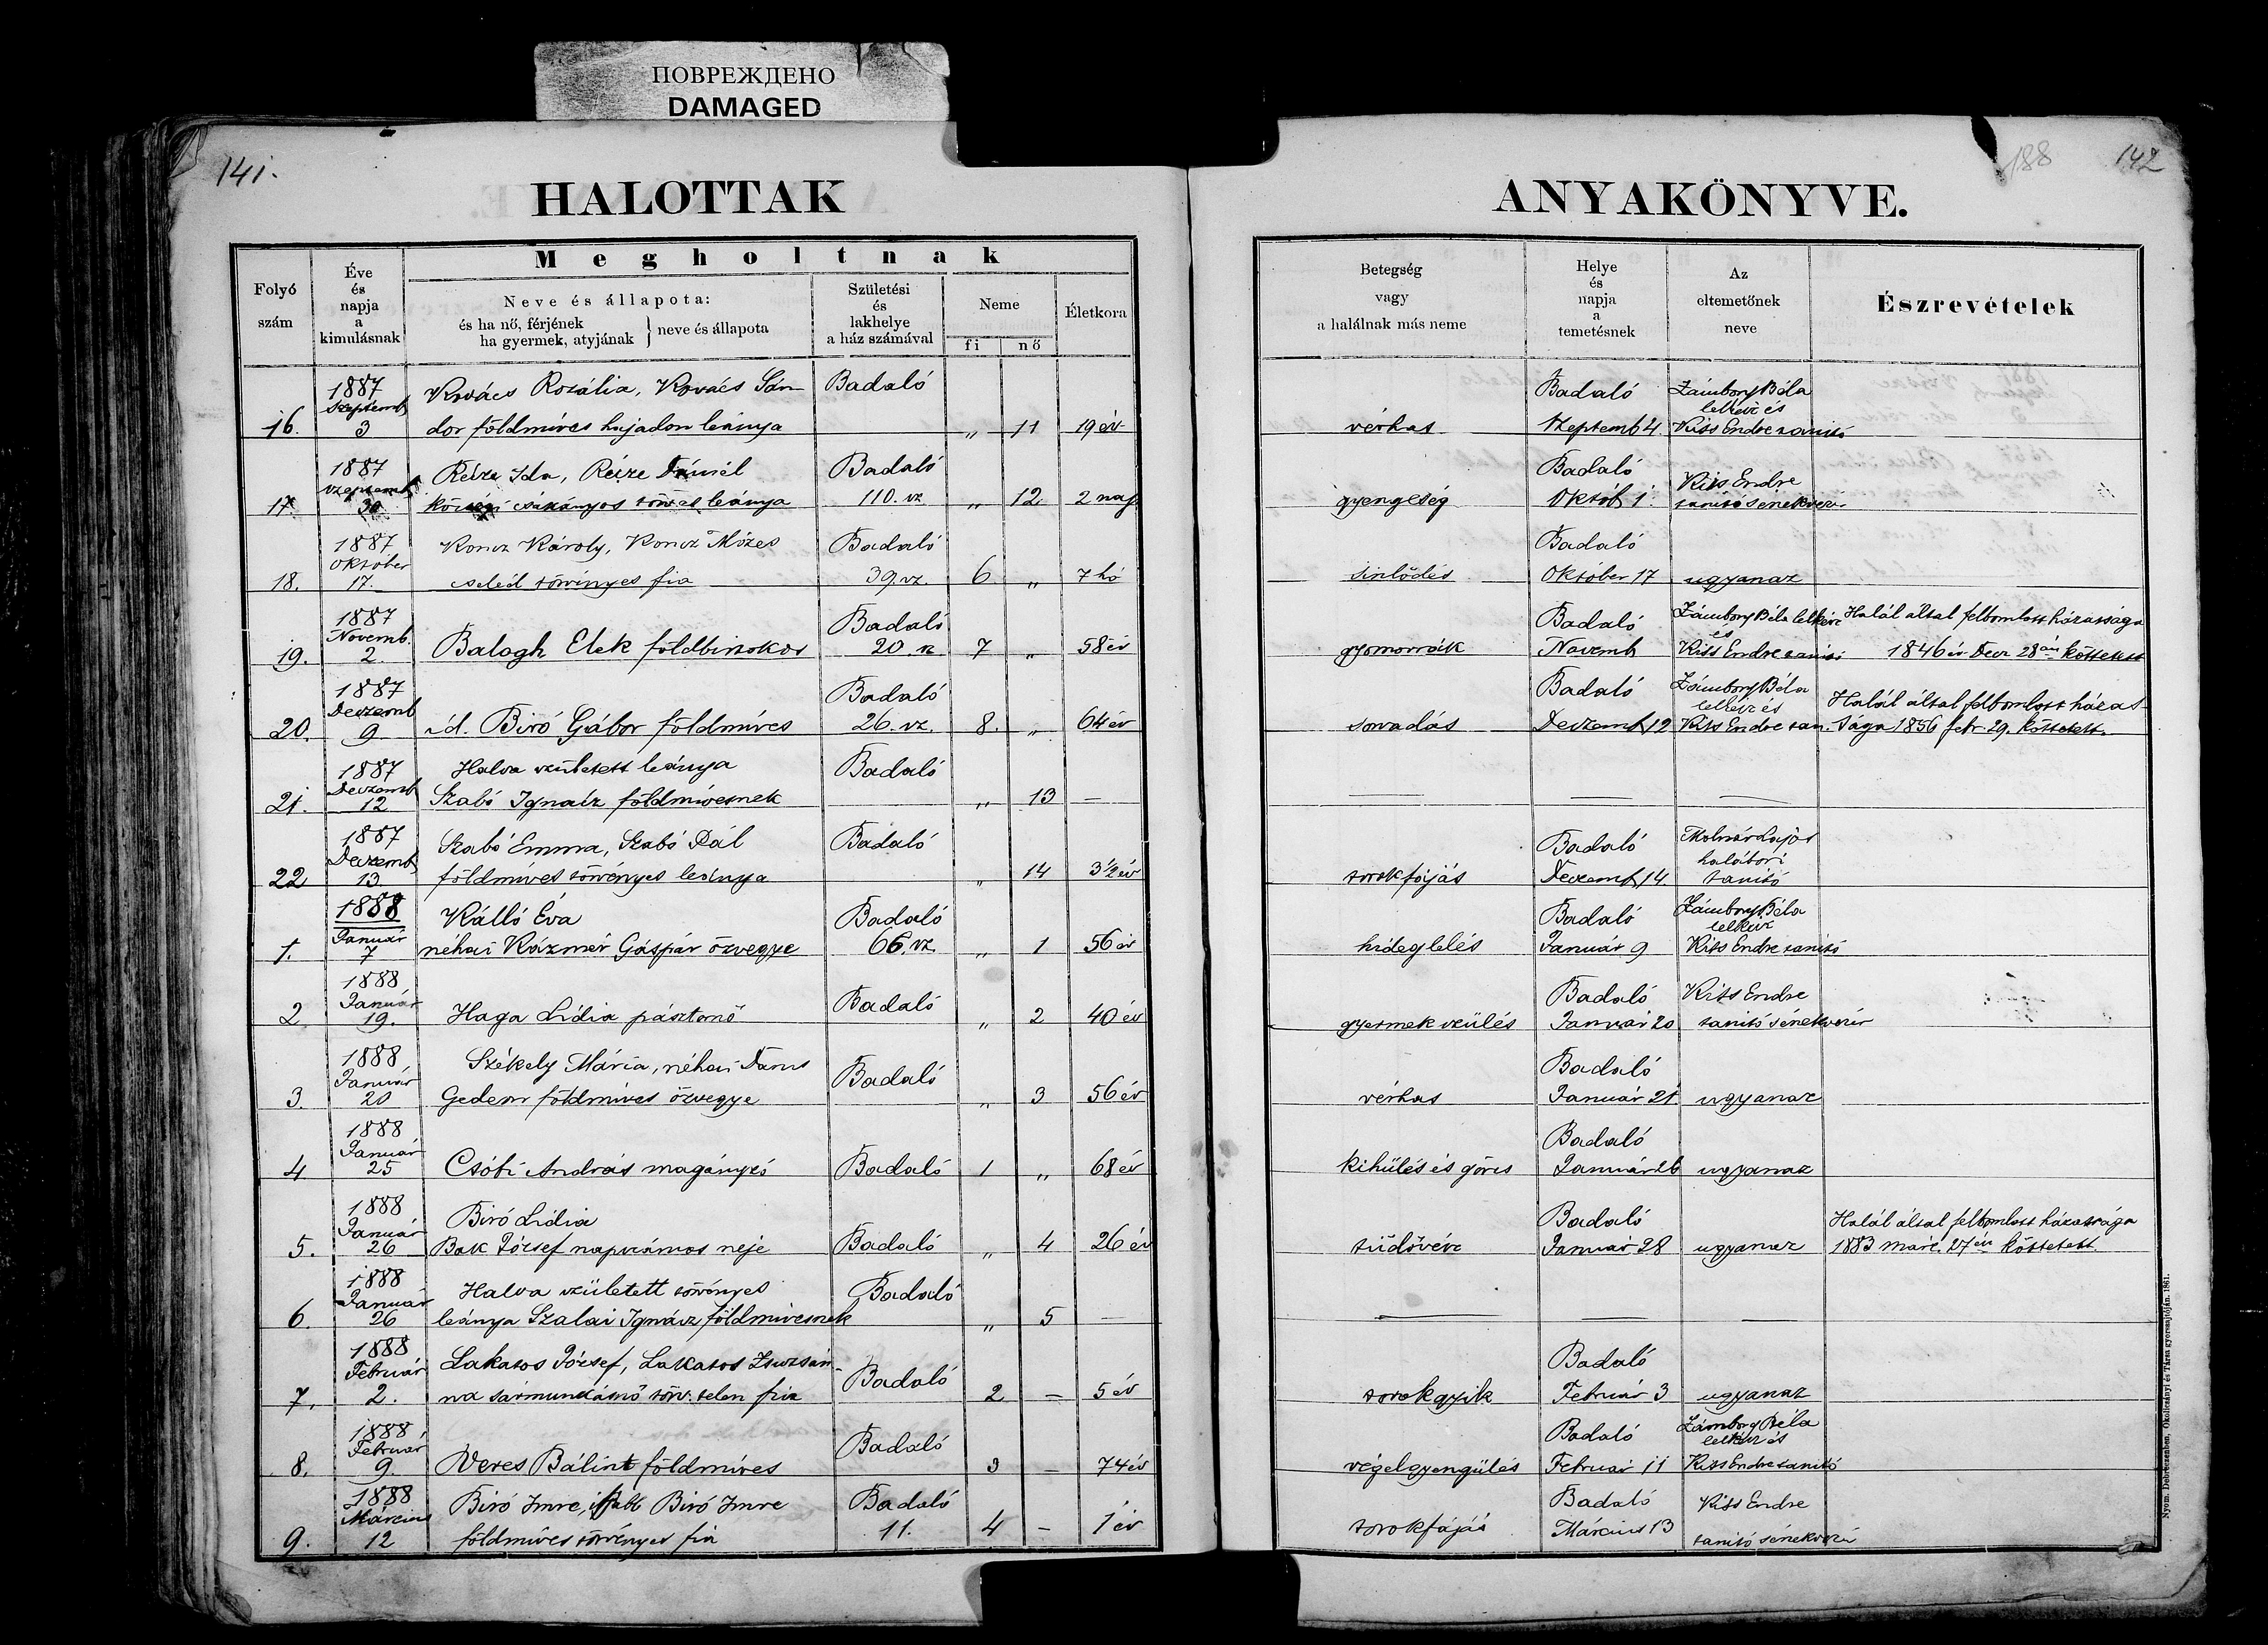 ПОВРЕЖДЕНО
DAMAGED
141.
HALOTTAK
Folyó szám
Éve és napja a kimulásnak
Megholtnak
Neve és állapota:
és ha nő, férjének
ha gyermek, atyjának } neve és állapota
Születési és lakhelye a ház számával
Neme
fi
nő
Életkora
16. 1887 Septemb 3 Kovács Rozália, Kovács Sán-
dor földmíves hajadon leánya Badaló „ 11 19 év
17. 1887 Szeptemb 30 Ida,
leánya Badaló 110. sz „ 12 2 nap
18. 1887 Október 17. Koncz Károly, Koncz Mózes
cseléd törvényes fia Badaló 39. sz. 6 „ 7 hó
19. 1887 Novemb. 2. Balogh Elek földbirtokos Badaló 20. sz 7 „ 58 év
20. 1887 Deczemb 9 id. Biró Gábor földmíves Badaló 26. sz. 8. „ 64 év
21. 1887 Deczemb 12 Halva született leánya
Szabó Ignácz földmívesnek Badaló „ 13 —
22 1887 Deczemb 13 Szabó Emma, Szabó Pál
földmíves törvényes leánya Badaló „ 14 3 1/2 év
1. 1888 Január 7 Kálló Éva
néhai Kázmér Gáspár özvegye Badaló 66. sz. „ 1 56 év
2 1888 Január 19. Haga Lidia pásztornő Badaló „ 2 40 év
3. 1888 Január 20 Székely Mária, néhai
Gedeon földmíves özvegye Badaló „ 3 56 év
4 1888 Január 25 Csóti András magányzó Badaló 1 „ 68 év
5. 1888 Január 26 Biró Lidia
Bak József napszámos neje Badaló „ 4 26 év
6. 1888 Január 26 Halva született törvényes
leánya Szalai Ignácz földmívesnek Badaló „ 5 —
7. 1888 Február 2. Lakatos József, Lakatos Zsuzsán-
na sármunkásnő törv. telen fia Badaló 2 — 5 év
8. 1888 Február 9. Veres Bálint földmíves Badaló 3 — 74 év
9. 1888 Március 12 Biró Imre, ifjabb Biró Imre
földmíves törvényes fia Badaló 11. 4 – 1 év
188
142
ANYAKÖNYVE.
Betegség vagy a halálnak más neme
Helye és napja a temetésnek
Az eltemetőnek neve
Észrevételek
vérhas Badaló Szeptemb 4. Zámbory Béla lelkész és Kiss Endre tanitó
gyengeség Badaló Októb 1. Kiss Endre tanitó s énekvezér
sinlődés Badaló Október 17 ugyanaz
gyomorrák Badaló Novemb Zámbory Béla lelkész és Kiss Endre tanitó Halál által felbomlott házassága
1846 év Decz 28án köttetett
sorvadás Badaló Deczemb 12 Zámbory Béla lelkész és Kiss Endre tan. Halál által felbomlott házas-
sága 1856 febr. 29. köttetett.
— — —
torokfájás Badaló Deczemb 14. Molnár Lajos halábori tanitó
hideglelés Badaló Január 9 Zámbory Béla lelkész Kiss Endre tanitó
gyermekszülés Badaló Január 20 Kiss Endre tanitó s énekvezér
vérhas Badaló Január 21. ugyanaz
kihülés és görcs Badaló Január 26 ugyanaz
tüdővész Badaló Január 28 ugyanaz Halál által felbomlott házassága
1883 márc. 27én köttetett.
— — —
torokgyik Badaló Február 3 ugyanaz
végelgyengülés Badaló Február 11 Zámbory Béla lelkész és Kiss Endre tanitó
torokfájás Badaló Március 13 Kiss Endre tanitó s énekvezér
Nyom. Debreczenben, Okolicsányi és Társa gyorssajtóján. 1861.